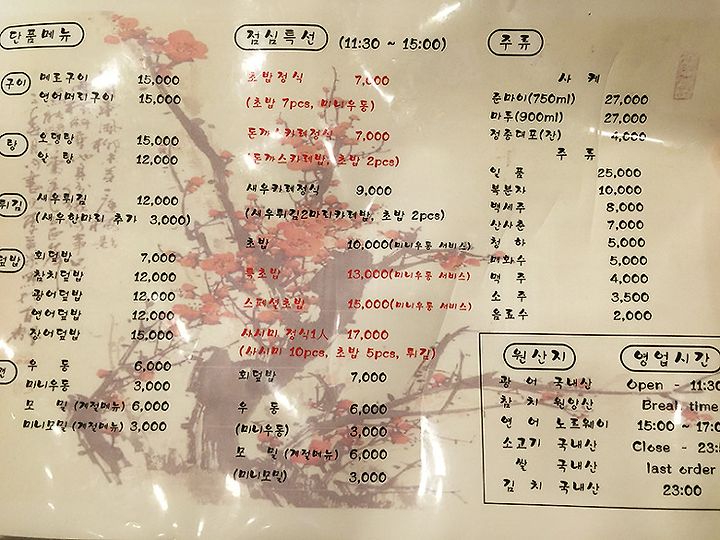 단품메뉴
구이 메로구이 15,000
연어머리구이 15,000
탕 오뎅탕 15,000
알탕 12,000
튀김 새우튀김 12,000
(새우한마리 추가 3,000)
덮밥 회덮밥 7,000
참치덮밥 12,000
광어덮밥 12,000
연어덮밥 12,000
장어덮밥 15,000
우동 6,000
미니우동 3,000
모밀 (계절메뉴) 6,000
미니모밀 (계절메뉴) 3,000
점심특선 (11:30 ~ 15:00)
초밥정식 7,000
(초밥 7pcs, 미니우동)
돈까스카레정식 7,000
(돈까스카레밥, 초밥 2pcs)
새우카레정식 9,000
(새우튀김2마리카레밥, 초밥 2pcs)
초밥 10,000(미니우동 서비스)
특초밥 13,000(미니우동 서비스)
스페셜초밥 15,000(미니우동 서비스)
사시미 정식1人 17,000
(사시미 10pcs, 초밥 5pcs, 튀김)
회덮밥 7,000
우동 6,000
(미니우동) 3,000
모밀 (계절메뉴) 6,000
(미니모밀) 3,000
주류
사케
준마이(750ml) 27,000
마루(900ml) 27,000
정종대포(잔) 4,000
주류
일품 25,000
복분자 10,000
백세주 8,000
산사춘 7,000
청하 5,000
매화수 5,000
맥주 4,000
소주 3,500
음료수 2,000
원산지
광어 국내산
참치 원양산
연어 노르웨이
소고기 국내산
쌀 국내산
김치 국내산
영업시간
Open - 11:30
Break time
15:00 ~ 17:0
Close - 23:
last order
23:00